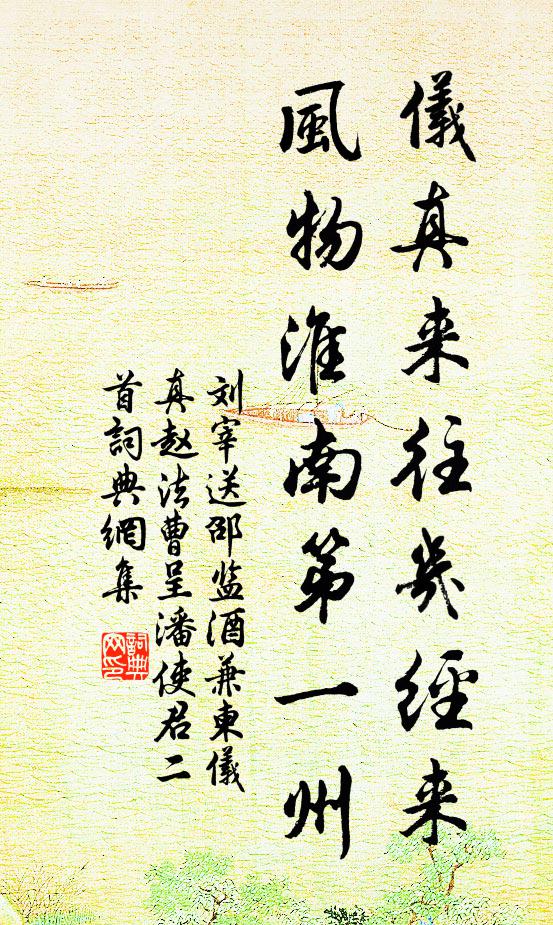 儀真来往幾經来
風物淮南第一州
刘宰送邵监酒兼柬儀
真赵法曹呈潘使君二
首詞典網集
詞典网印